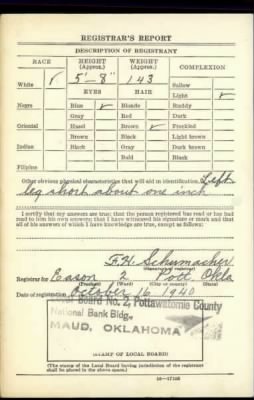 REGISTRAR'S REPORT
DESCRIPTION OF REGISTRANT
RACE HEIGHT (Approx.) WEIGHT (Approx.) COMPLEXION
White ✓ 5'-8" 143 Sallow
Light ✓
EYES HAIR
Negro Blue ✓ Blonde Ruddy
Gray Red Dark
Oriental Hazel Brown ✓ Freckled
Brown Black Light brown
Indian Black Gray Dark brown
Bald Black
Filipino
Other obvious physical characteristics that will aid in identification Left
leg short about one inch
I certify that my answers are true; that the person registered has read or has had
read to him his own answers; that I have witnessed his signature or mark and that
all of his answers of which I have knowledge are true, except as follows:
F. H. Schumacher
(Signature of registrar)
Registrar for Eason 2 Pott Okla
(Precinct) (Ward) (City or county) (State)
Date of registration October 16 1940
Local Board No. 2, Pottawatomie County
National Bank Bldg.
MAUD, OKLAHOMA
(STAMP OF LOCAL BOARD)
(The stamp of the Local Board having jurisdiction of the registrant
shall be placed in the above space.)
16-17105